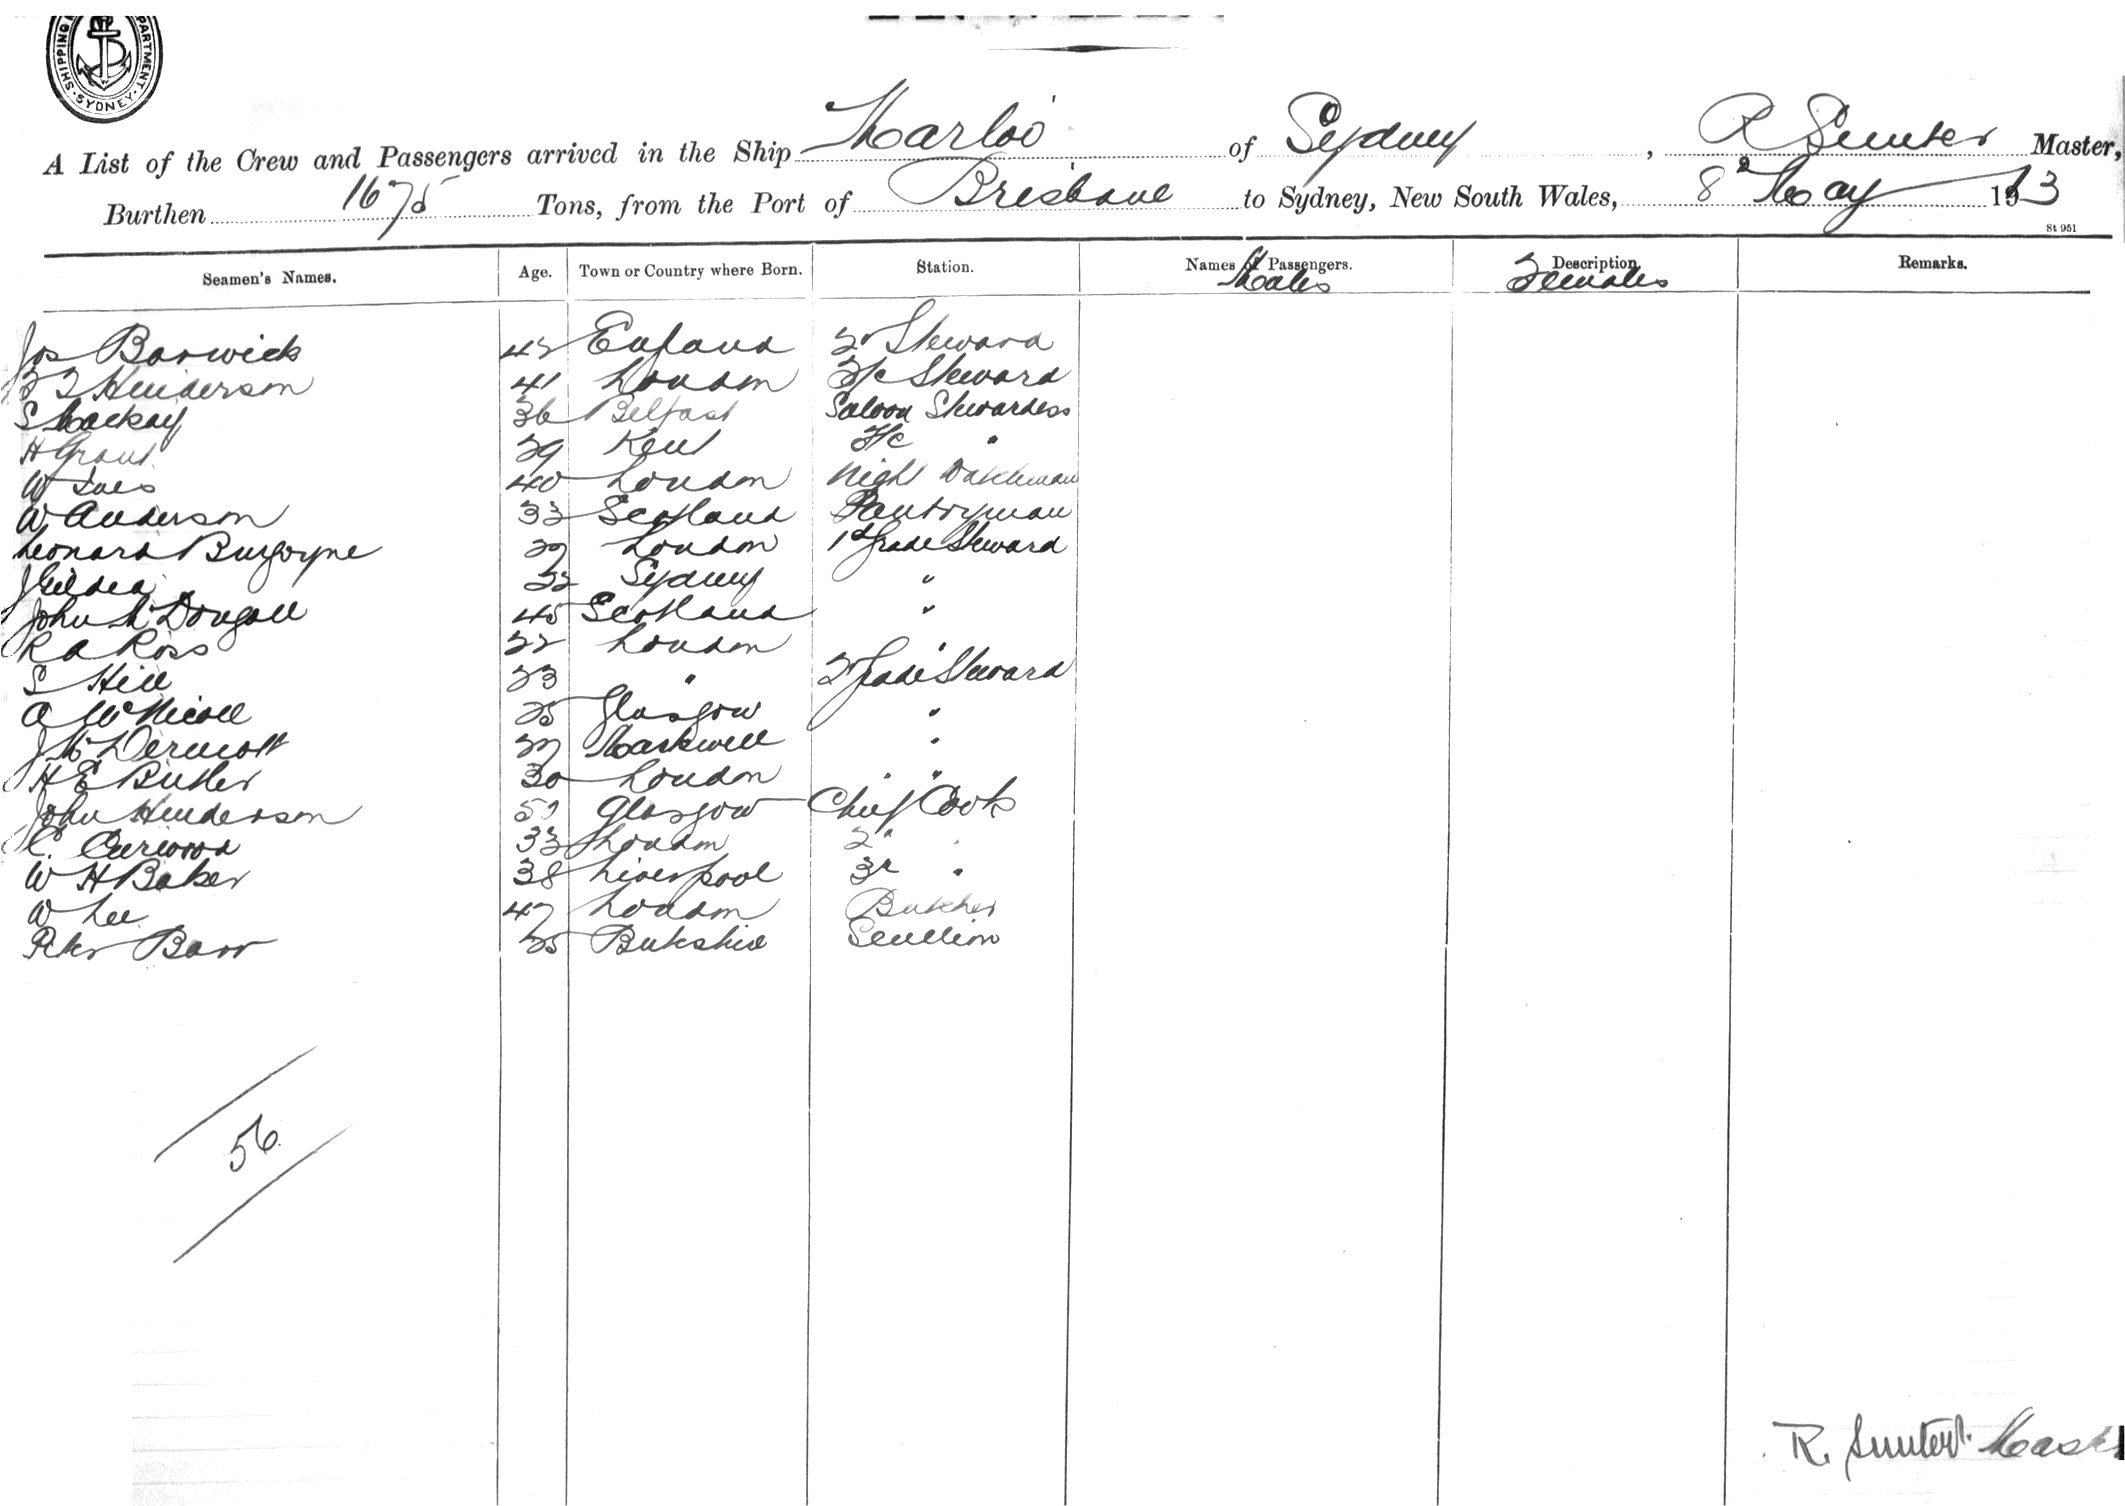 SHIPPING DEPARTMENT SYDNEY
A List of the Crew and Passengers arrived in the Ship Marloo of Sydney, R Sunter Master,
Burthen 1675 Tons, from the Port of Brisbane to Sydney, New South Wales, 8 May 1913
St 951
Seamen's Names. Age. Town or Country where Born. Station. Names of Passengers. Description Remarks.
Males Females
Jos Barwick 42 England 2 Steward
Henderson 41 London F/c Steward
S Mackay 36 Belfast Saloon Stewardess
H Grant 29 Kent F/c "
W Ives 40 London Night Watchman
W Anderson 33 Scotland Pantryman
Leonard Burgoyne 29 London 1st Grade Steward
J Gildea 32 Sydney "
John McDougall 45 Scotland "
R A Ross 22 London "
S Hill 23 " 2 Grade Steward
A McNicoll 25 Glasgow "
J McDermott 27 "
H E Butler 30 London " "
John Henderson 57 Glasgow Chief Cook
C. Curwood 33 London 2 "
W H Baker 38 Liverpool 3r "
W Lee 47 London Butcher
Peter Barr 25 Scullion
56
R. Sunter Mast